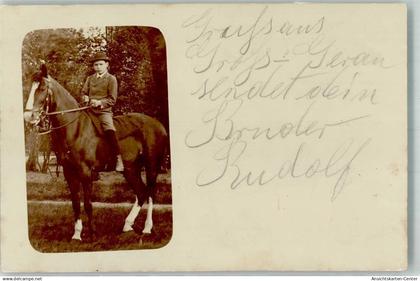 Gruß aus
Groß-Gerau
sendet dein
Bruder
Rudolf
Ansichtskarten-Center